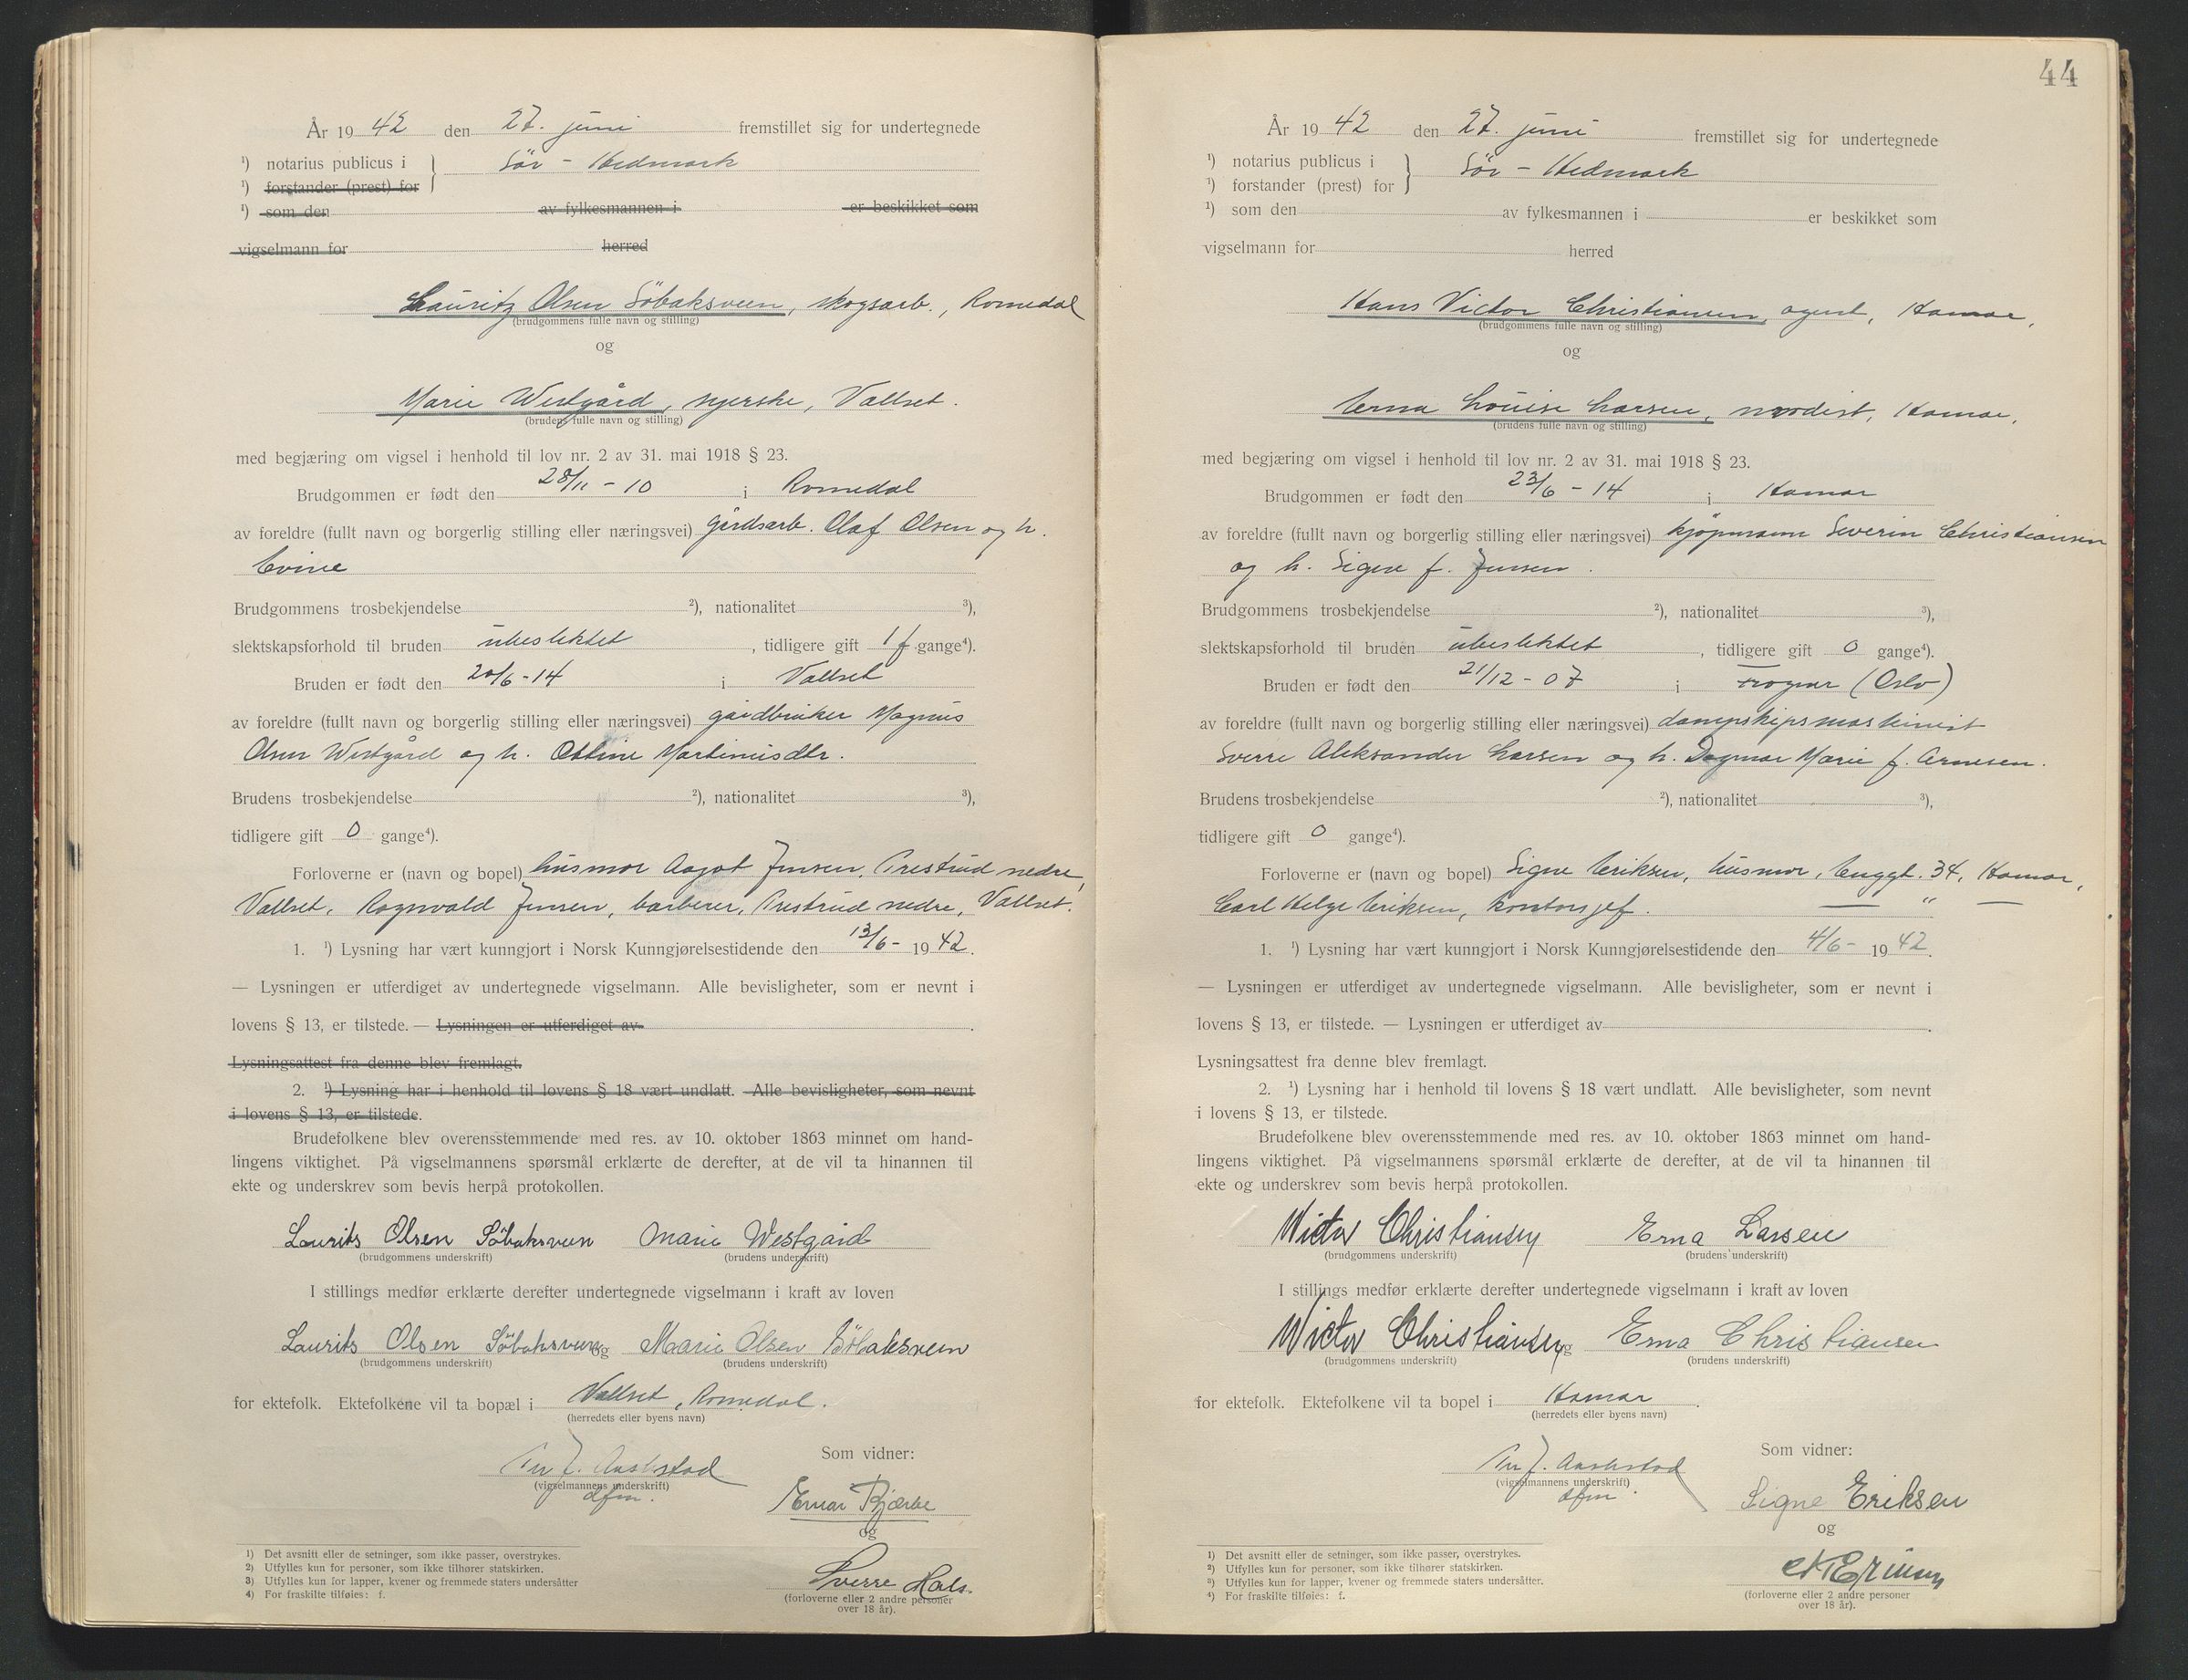 År 1942 den 27. juni fremstillet sig for undertegnede
¹) notarius publicus i } Sör - Hedmark
¹) forstander (prest) for
¹) som den av fylkesmannen i er beskikket som
vigselmann for herred
Lauritz Olsen Söbaksveen, skogsarb., Romedal
(brudgommens fulle navn og stilling)
og
Marie Westgård, syerske, Vallset.
(brudens fulle navn og stilling)
med begjæring om vigsel i henhold til lov nr. 2 av 31. mai 1918 § 23.
Brudgommen er født den 28/11 - 10 i Romedal
av foreldre (fullt navn og borgerlig stilling eller næringsvei) gårdsarb. Olaf Olsen og h.
Evine
Brudgommens trosbekjendelse ²), nationalitet ³),
slektskapsforhold til bruden ubeslektet, tidligere gift 1 f gange⁴).
Bruden er født den 20/6 - 14 i Vallset
av foreldre (fullt navn og borgerlig stilling eller næringsvei) gårdbruker Magnus
Olsen Westgård og h. Ottine Martinusdtr.
Brudens trosbekjendelse ²), nationalitet ³),
tidligere gift 0 gange⁴).
Forloverne er (navn og bopel) husmor Aagot Jensen, Prestrud nedre,
Vallset, Ragnvald Jensen, barberer, Prestrud nedre, Vallset.
1. ¹) Lysning har vært kunngjort i Norsk Kunngjørelsestidende den 13/6 - 1942.
— Lysningen er utferdiget av undertegnede vigselmann. Alle bevisligheter, som er nevnt i
lovens § 13, er tilstede. — Lysningen er utferdiget av .
Lysningsattest fra denne blev fremlagt.
2. ¹) Lysning har i henhold til lovens § 18 vært undlatt. Alle bevisligheter, som nevnt
i lovens § 13, er tilstede.
Brudefolkene blev overensstemmende med res. av 10. oktober 1863 minnet om hand-
lingens viktighet. På vigselmannens spørsmål erklærte de derefter, at de vil ta hinannen til
ekte og underskrev som bevis herpå protokollen.
Laurits Olsen Söbaksveen Marie Westgård
(brudgommens underskrift) (brudens underskrift)
I stillings medfør erklærte derefter undertegnede vigselmann i kraft av loven
Laurits Olsen Söbaksveen og Marie Olsen Söbaksveen
(brudgommens underskrift) (brudens underskrift)
for ektefolk. Ektefolkene vil ta bopæl i Vallset, Romedal.
(herredets eller byens navn)
Som vidner:
Per J. Aashstad
(vigselmannens underskrift)
dfm.
Einar Bjærke
og
Sverre Hals.
(forloverne eller 2 andre personer
over 18 år).
1) Det avsnitt eller de setninger, som ikke passer, overstrykes.
2) Utfylles kun for personer, som ikke tilhører statskirken.
3) Utfylles kun for lapper, kvener og fremmede staters undersåtter
4) For fraskilte tilføies: f.
44
År 1942 den 27. juni fremstillet sig for undertegnede
¹) notarius publicus i } Sör - Hedmark
¹) forstander (prest) for
¹) som den av fylkesmannen i er beskikket som
vigselmann for herred
Hans Victor Christiansen, agent, Hamar,
(brudgommens fulle navn og stilling)
og
Erna Louise Larsen, modist, Hamar,
(brudens fulle navn og stilling)
med begjæring om vigsel i henhold til lov nr. 2 av 31. mai 1918 § 23.
Brudgommen er født den 23/6 - 14 i Hamar
av foreldre (fullt navn og borgerlig stilling eller næringsvei) kjöpmann Severin Christiansen
og h. Signe f. Jensen.
Brudgommens trosbekjendelse ²), nationalitet ³),
slektskapsforhold til bruden ubeslektet, tidligere gift 0 gange⁴).
Bruden er født den 21/12 - 07 i Frogner (Oslo)
av foreldre (fullt navn og borgerlig stilling eller næringsvei) dampskipsmaskinist
Sverre Aleksander Larsen og h. Dagmar Marie f. Arnesen.
Brudens trosbekjendelse ²), nationalitet ³),
tidligere gift 0 gange⁴).
Forloverne er (navn og bopel) Signe Eriksen, husmor, Enggt. 34, Hamar,
Carl Helge Eriksen, kontorsjef. — " —
1. ¹) Lysning har vært kunngjort i Norsk Kunngjørelsestidende den 4/6 - 1942.
— Lysningen er utferdiget av undertegnede vigselmann. Alle bevisligheter, som er nevnt i
lovens § 13, er tilstede. — Lysningen er utferdiget av .
Lysningsattest fra denne blev fremlagt.
2. ¹) Lysning har i henhold til lovens § 18 vært undlatt. Alle bevisligheter, som nevnt
i lovens § 13, er tilstede.
Brudefolkene blev overensstemmende med res. av 10. oktober 1863 minnet om hand-
lingens viktighet. På vigselmannens spørsmål erklærte de derefter, at de vil ta hinannen til
ekte og underskrev som bevis herpå protokollen.
Victor Christiansen Erna Larsen
(brudgommens underskrift) (brudens underskrift)
I stillings medfør erklærte derefter undertegnede vigselmann i kraft av loven
Victor Christiansen og Erna Christiansen
(brudgommens underskrift) (brudens underskrift)
for ektefolk. Ektefolkene vil ta bopel i Hamar.
(herredets eller byens navn)
Som vidner:
Per J. Aashstad
(vigselmannens underskrift)
dfm.
Signe Eriksen
og
(forloverne eller 2 andre personer
over 18 år).
¹) Det avsnitt eller de setninger, som ikke passer, overstrykes.
²) Utfylles kun for personer, som ikke tilhører statskirken.
³) Utfylles kun for lapper, kvener og fremmede staters undersåtter.
⁴) For fraskilte tilføies: f.